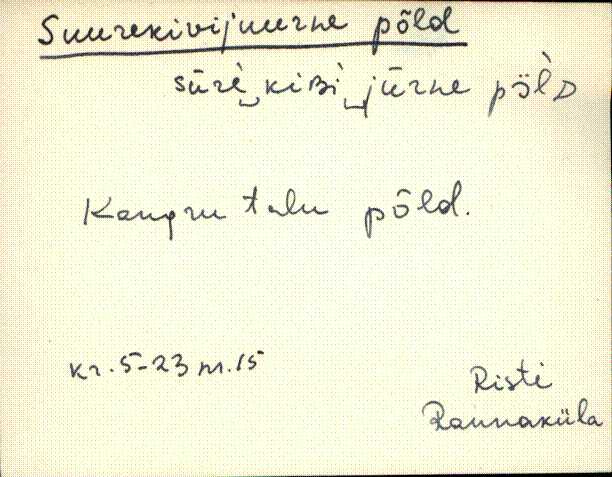 Suurekivijuurne põld
sūrè‿kiʙì‿jūrne põ̀lᴅ
Kangru talu põld.
kr. 5-23 nr. 15
Risti
Rannaküla